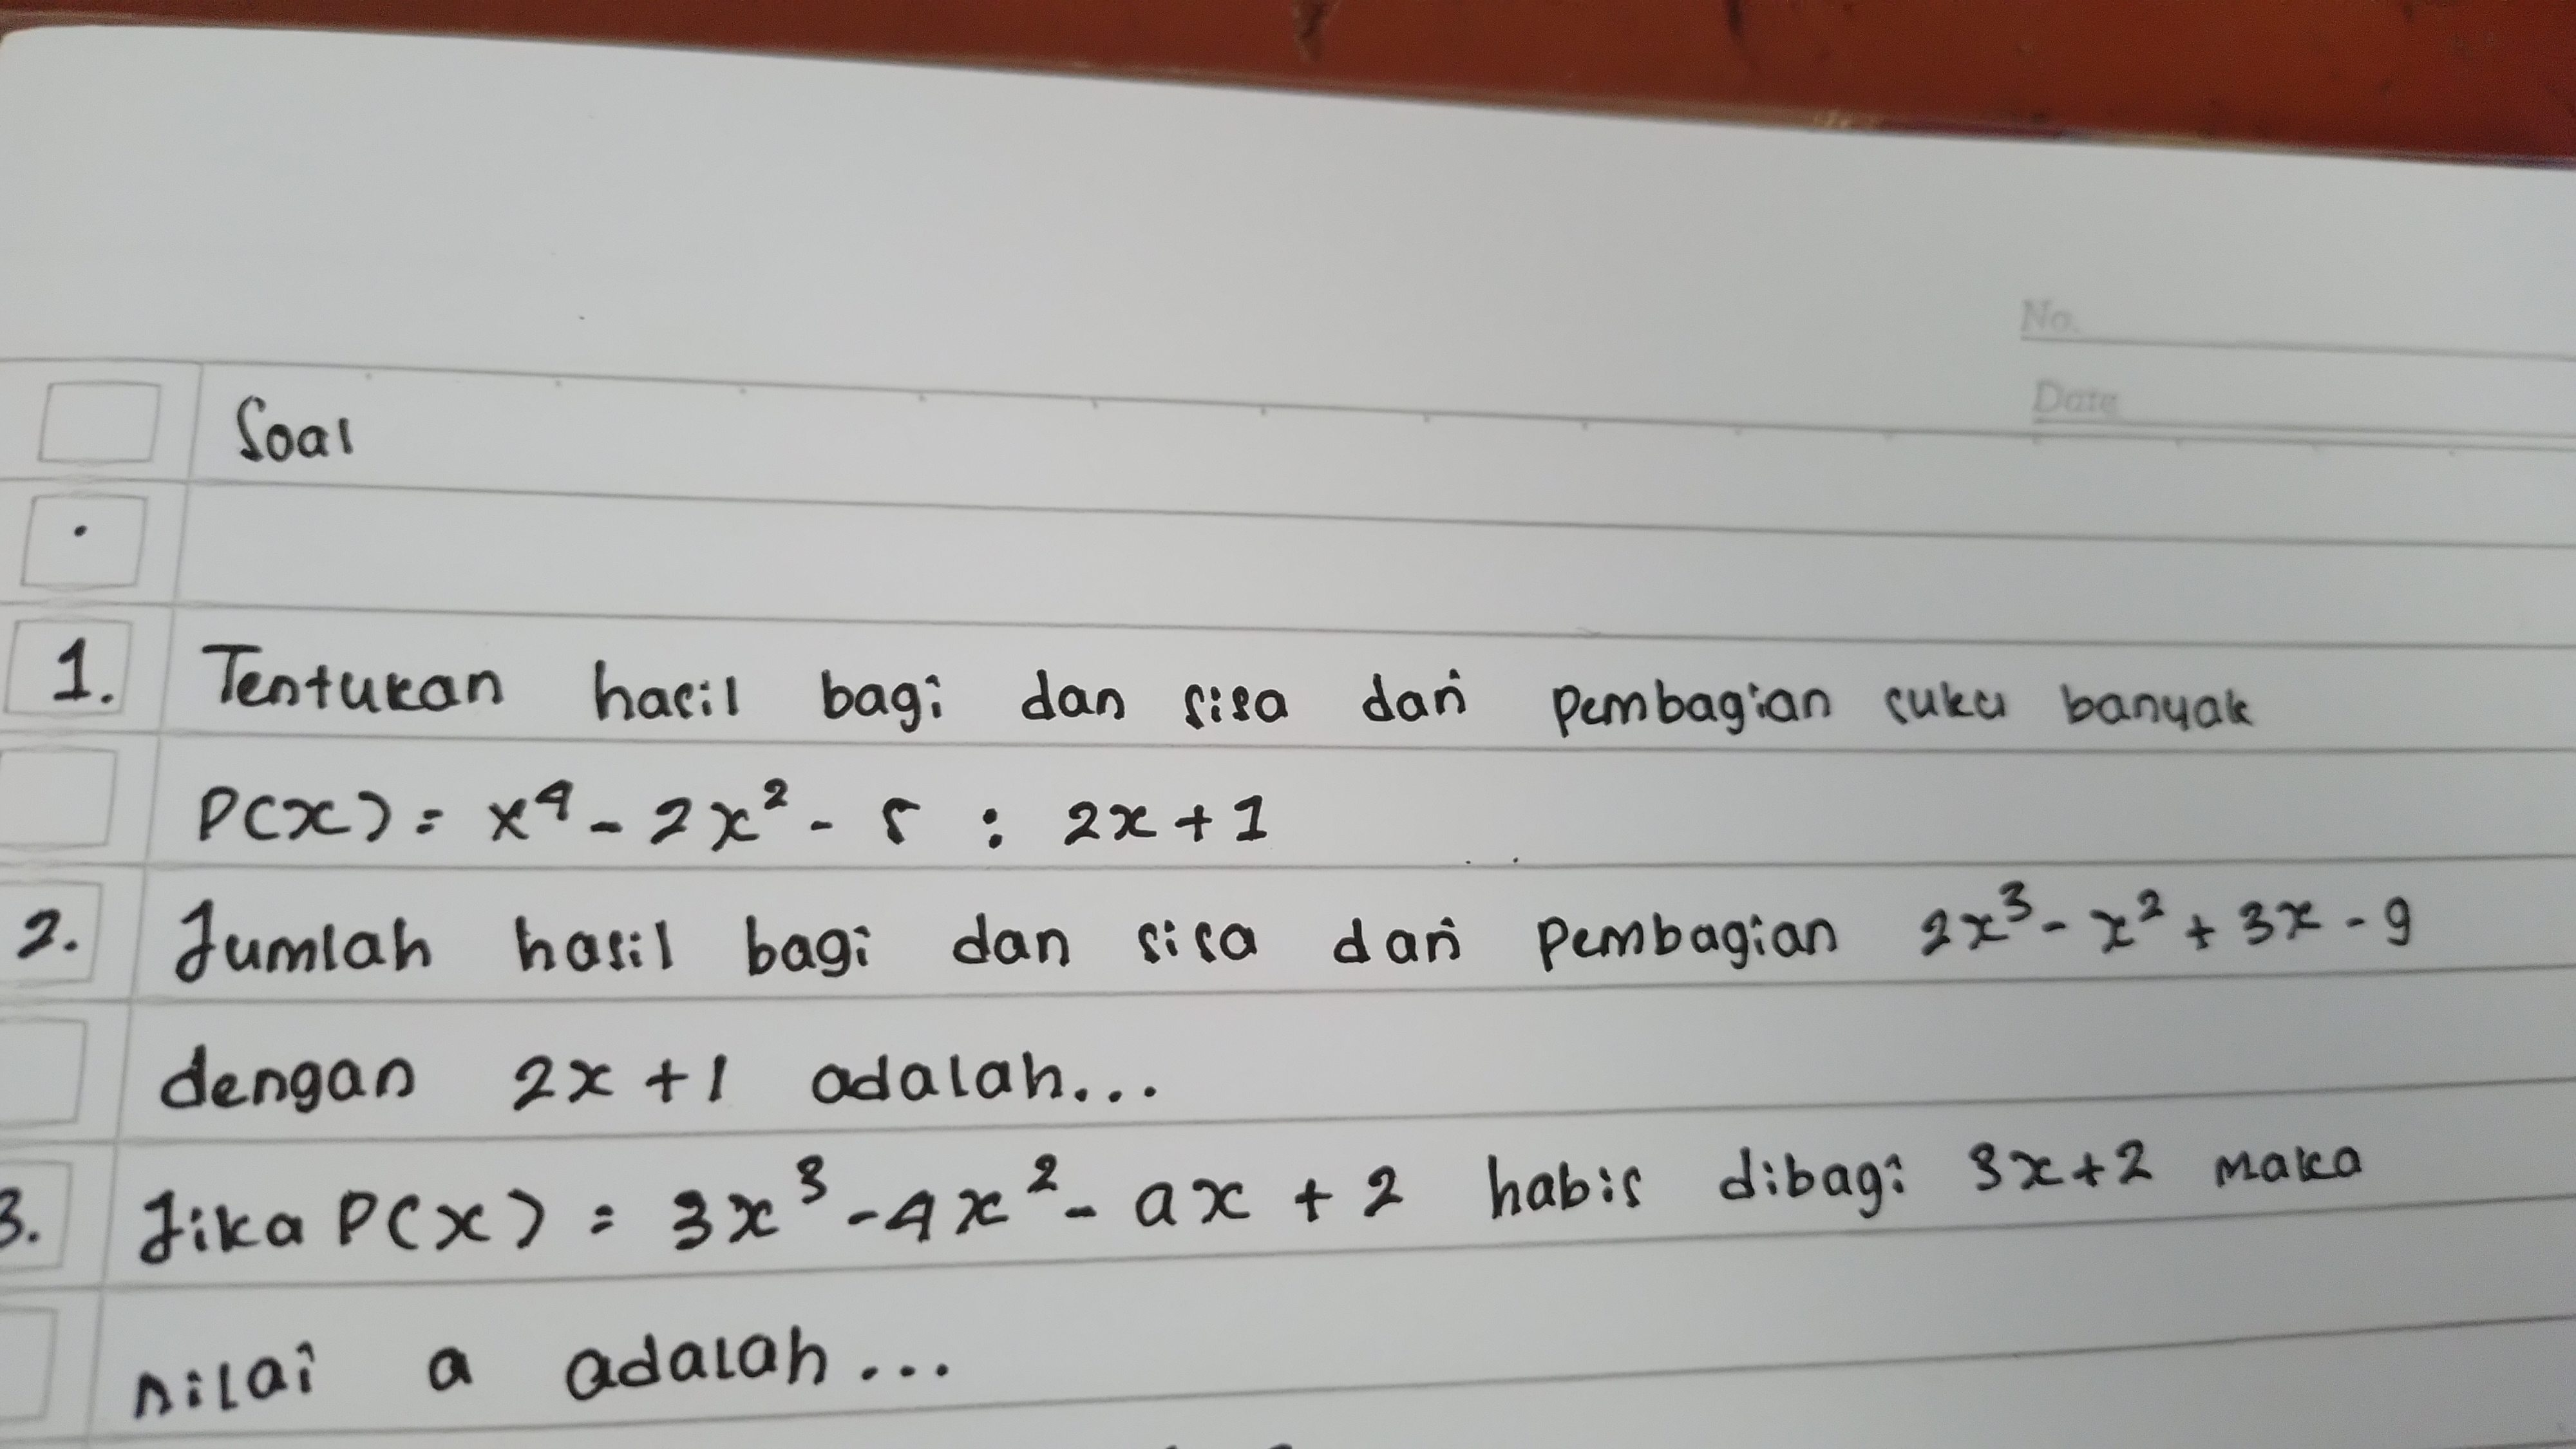 No.
Date
Soal
1. Tentukan hasil bagi dan sisa dari pembagian suku banyak
P(x) = x⁴ - 2x² - 5 : 2x + 1
2. Jumlah hasil bagi dan sisa dari pembagian 2x³ - x² + 3x - 9
dengan 2x + 1 adalah...
3. Jika P(x) = 3x³ - 4x² - ax + 2 habis dibagi 3x+2 maka
nilai a adalah...